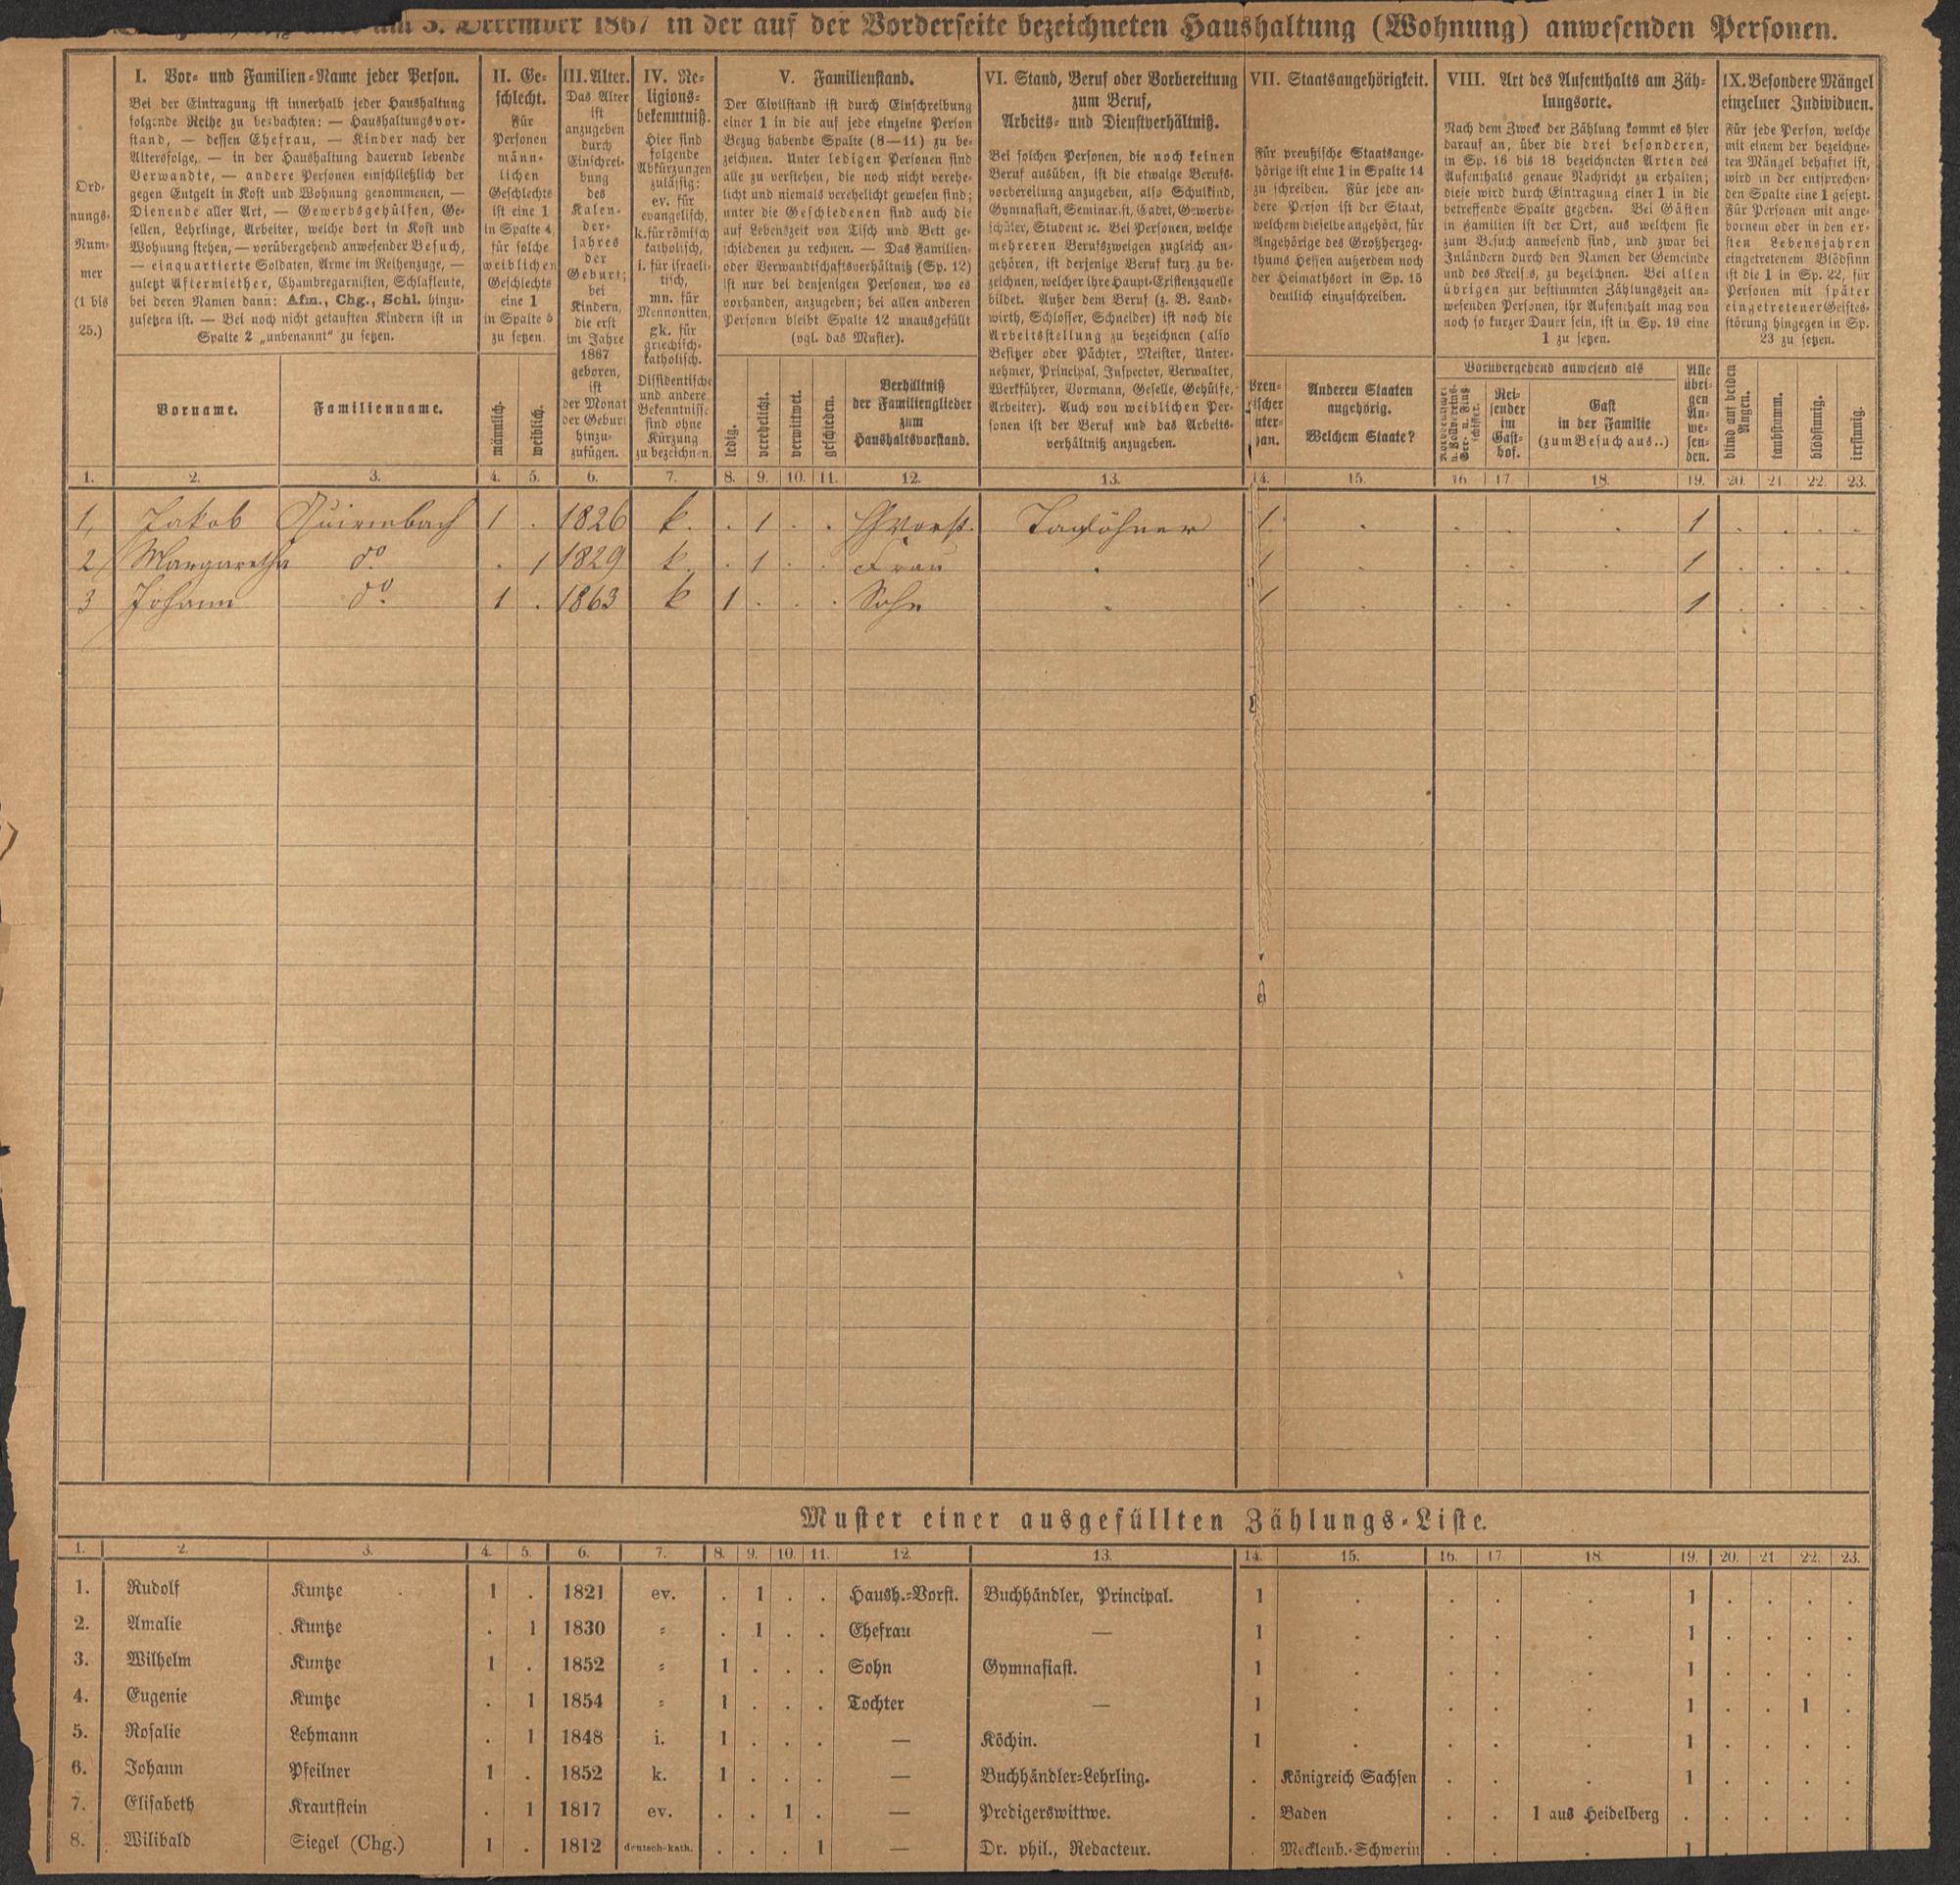 am 3. December 1867 in der auf der Vorderseite bezeichneten Haushaltung (Wohnung) anwesenden Personen.
Ord-
nungs-
Num-
mer
(1 bis
25.)
I. Vor- und Familien-Name jeder Person.
Bei der Eintragung ist innerhalb jeder Haushaltung
folgende Reihe zu beobachten: — Haushaltungsvor-
stand, — dessen Ehefrau, — Kinder nach der
Altersfolge, — in der Haushaltung dauernd lebende
Verwandte, — andere Personen einschließlich der
gegen Entgelt in Kost und Wohnung genommenen, —
Dienende aller Art, — Gewerbsgehülfen, Ge-
sellen, Lehrlinge, Arbeiter, welche dort in Kost und
Wohnung stehen, — vorübergehend anwesender Besuch,
— einquartierte Soldaten, Arme im Reihenzuge, —
zuletzt Aftermiether, Chambregarnisten, Schlafleute,
bei deren Namen dann: Afm., Chg., Schl. hinzu-
zusetzen ist. — Bei noch nicht getauften Kindern ist in
Spalte 2 „unbenannt" zu setzen.
Vorname.
Familienname.
II. Ge-
schlecht.
Für
Personen
männ-
lichen
Geschlechts
ist eine 1
in Spalte 4,
für solche
weiblichen
Geschlechts
eine 1
in Spalte 5
zu setzen.
männlich.
weiblich.
III. Alter.
Das Alter
ist
anzugeben
durch
Einschrei-
bung
des
Kalen-
der-
jahres
der
Geburt;
bei
Kindern,
die erst
im Jahre
1867
geboren,
ist
der Monat
der Geburt
hinzu-
zufügen.
IV. Re-
ligions-
bekenntniß.
Hier sind
folgende
Abkürzungen
zulässig:
ev. für
evangelisch,
k. für römisch
katholisch,
i. für israeli-
tisch,
mn. für
Mennoniten,
gk. für
griechisch-
katholisch.
Dissidentische
und andere
Bekenntnisse
sind ohne
Kürzung
zu bezeichnen.
V. Familienstand.
Der Civilstand ist durch Einschreibung
einer 1 in die auf jede einzelne Person
Bezug habende Spalte (8—11) zu be-
zeichnen. Unter ledigen Personen sind
alle zu verstehen, die noch nicht verehe-
licht und niemals verehelicht gewesen sind;
unter die Geschiedenen sind auch die
auf Lebenszeit von Tisch und Bett ge-
schiedenen zu rechnen. — Das Familien-
oder Verwandtschaftsverhältniß (Sp. 12)
ist nur bei denjenigen Personen, wo es
vorhanden, anzugeben; bei allen anderen
Personen bleibt Spalte 12 unausgefüllt
(vgl. das Muster).
ledig.
verehelicht.
verwittwet.
geschieden.
Verhältniß
der Familienglieder
zum
Haushaltsvorstand.
VI. Stand, Beruf oder Vorbereitung
zum Beruf,
Arbeits- und Dienstverhältniß.
Bei solchen Personen, die noch keinen
Beruf ausüben, ist die etwaige Berufs-
vorbereitung anzugeben, also Schulkind,
Gymnasiast, Seminarist, Cadet, Gewerbe-
schüler, Student ꝛc. Bei Personen, welche
mehreren Berufszweigen zugleich an-
gehören, ist derjenige Beruf kurz zu be-
zeichnen, welcher ihre Haupt-Existenzquelle
bildet. Außer dem Beruf (z. B. Land-
wirth, Schlosser, Schneider) ist noch die
Arbeitsstellung zu bezeichnen (also
Besitzer oder Pächter, Meister, Unter-
nehmer, Principal, Inspector, Verwalter,
Werkführer, Vormann, Geselle, Gehülfe,
Arbeiter). Auch von weiblichen Per-
sonen ist der Beruf und das Arbeits-
verhältniß anzugeben.
VII. Staatsangehörigkeit.
Für preußische Staatsange-
hörige ist eine 1 in Spalte 14
zu schreiben. Für jede an-
dere Person ist der Staat,
welchem dieselbe angehört, für
Angehörige des Großherzog-
thums Hessen außerdem noch
der Heimathsort in Sp. 15
deutlich einzuschreiben.
Preu-
ßischer
Unter-
than.
Anderen Staaten
angehörig.
Welchem Staate?
VIII. Art des Aufenthalts am Zäh-
lungsorte.
Nach dem Zweck der Zählung kommt es hier
darauf an, über die drei besonderen,
in Sp. 16 bis 18 bezeichneten Arten des
Aufenthalts genaue Nachricht zu erhalten;
diese wird durch Eintragung einer 1 in die
betreffende Spalte gegeben. Bei Gästen
in Familien ist der Ort, aus welchem sie
zum Besuch anwesend sind, und zwar bei
Inländern durch den Namen der Gemeinde
und des Kreises, zu bezeichnen. Bei allen
übrigen zur bestimmten Zählungszeit an-
wesenden Personen, ihr Aufenthalt mag von
noch so kurzer Dauer sein, ist in Sp. 19 eine
1 zu setzen.
Vorübergehend anwesend als
Rei-
sender
im
Gast-
hof.
Gast
in der Familie
(zum Besuch aus..)
Alle
übri-
gen
An-
we-
sen-
den.
IX. Besondere Mängel
einzelner Individuen.
Für jede Person, welche
mit einem der bezeichne-
ten Mängel behaftet ist,
wird in der entsprechen-
den Spalte eine 1 gesetzt.
Für Personen mit ange-
bornem oder in den er-
sten Lebensjahren
eingetretenem Blödsinn
ist die 1 in Sp. 22, für
Personen mit später
eingetretener Geistes-
störung hingegen in Sp.
23 zu setzen.
blind auf beiden
Augen.
taubstumm.
blödsinnig.
irrsinnig.
1. 2. 3. 4. 5. 6. 7. 8. 9. 10. 11. 12. 13. 14. 15. 16. 17. 18. 19. 20. 21. 22. 23.
1, Jakob Quirmbach 1 . 1826 k. . 1 . . HVorst. Taglöhner 1 . . . . 1 . . . .
2 Margaretha do. . 1 1829 k. . 1 . . Frau . 1 . . . . 1 . . . .
3 Johann do. 1 . 1863 k 1 . . . Sohn . 1 . . . . 1 . . . .
Muster einer ausgefüllten Zählungs-Liste.
1. 2. 3. 4. 5. 6. 7. 8. 9. 10. 11. 12. 13. 14. 15. 16. 17. 18. 19. 20. 21. 22. 23.
1. Rudolf Kuntze 1 . 1821 ev. . 1 . . Haush.-Vorst. Buchhändler, Principal. 1 . . . . 1 . . . .
2. Amalie Kuntze . 1 1830 " . 1 . . Ehefrau — 1 . . . . 1 . . . .
3. Wilhelm Kuntze 1 . 1852 " 1 . . . Sohn Gymnasiast. 1 . . . . 1 . . . .
4. Eugenie Kuntze . 1 1854 " 1 . . . Tochter — 1 . . . . 1 . . 1 .
5. Rosalie Lehmann . 1 1848 i. 1 . . . — Köchin. 1 . . . . 1 . . . .
6. Johann Pfeilner 1 . 1852 k. 1 . . . — Buchhändler-Lehrling. . Königreich Sachsen . . . 1 . . . .
7. Elisabeth Krautstein . 1 1817 ev. . . 1 . — Predigerswittwe. . Baden . . 1 aus Heidelberg . . . . .
8. Wilibald Siegel (Chg.) 1 . 1812 deutsch-kath. . . . 1 — Dr. phil., Redacteur. . Mecklenb.-Schwerin . . . 1 . . . .